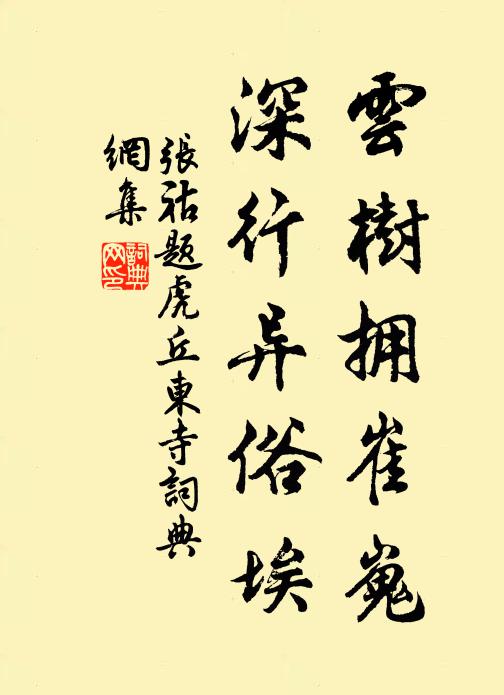 雲樹拥崔嵬
深行异俗埃
張祜题虎丘東寺詞典
網集
詞典网印